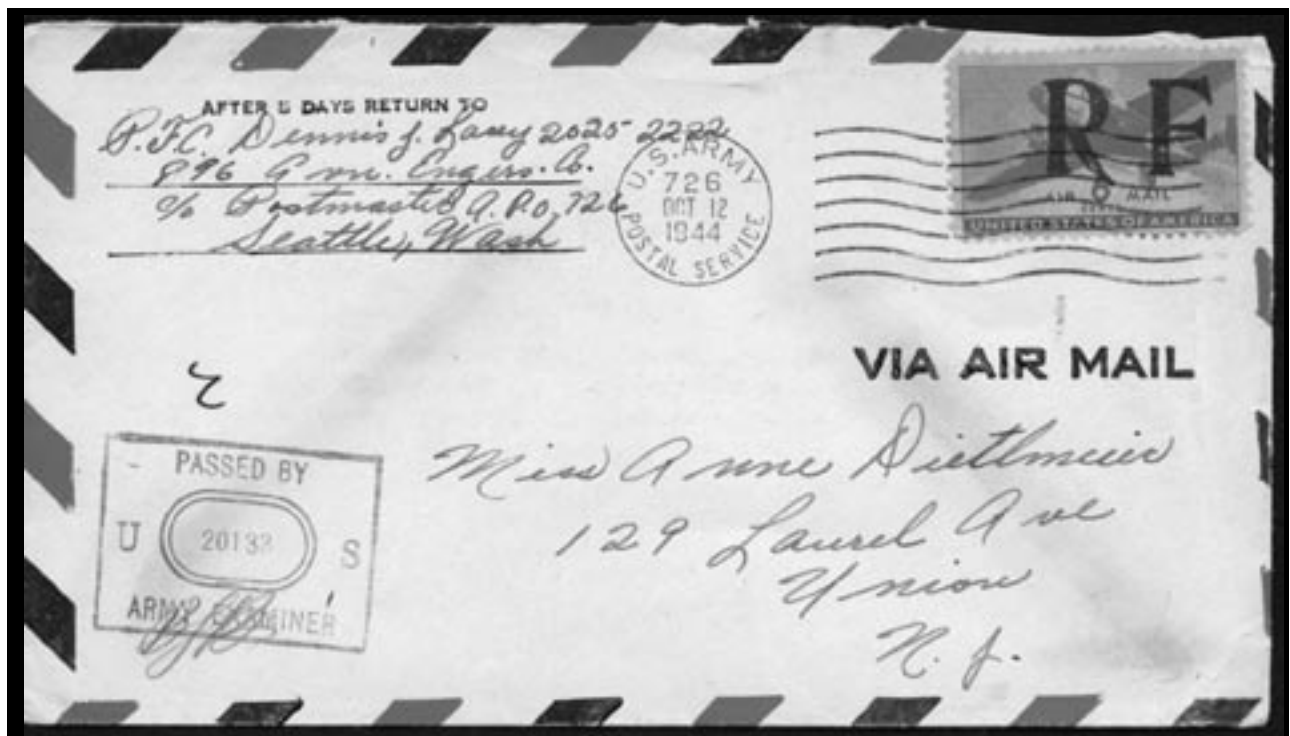 AFTER 5 DAYS RETURN TO
P.F.C. Dennis J. Lacey 2025 2222
896 Avn. Engers. Co.
c/o Postmaster A.P.O. 726
Seattle, Wash
U.S. ARMY
726
OCT 12
1944
POSTAL SERVICE
R F
AIR MAIL
UNITED STATES OF AMERICA
VIA AIR MAIL
PASSED BY
U 20133 S
ARMY EXAMINER
Miss Anne Dietlmeier
129 Laurel Ave
Union
N. J.